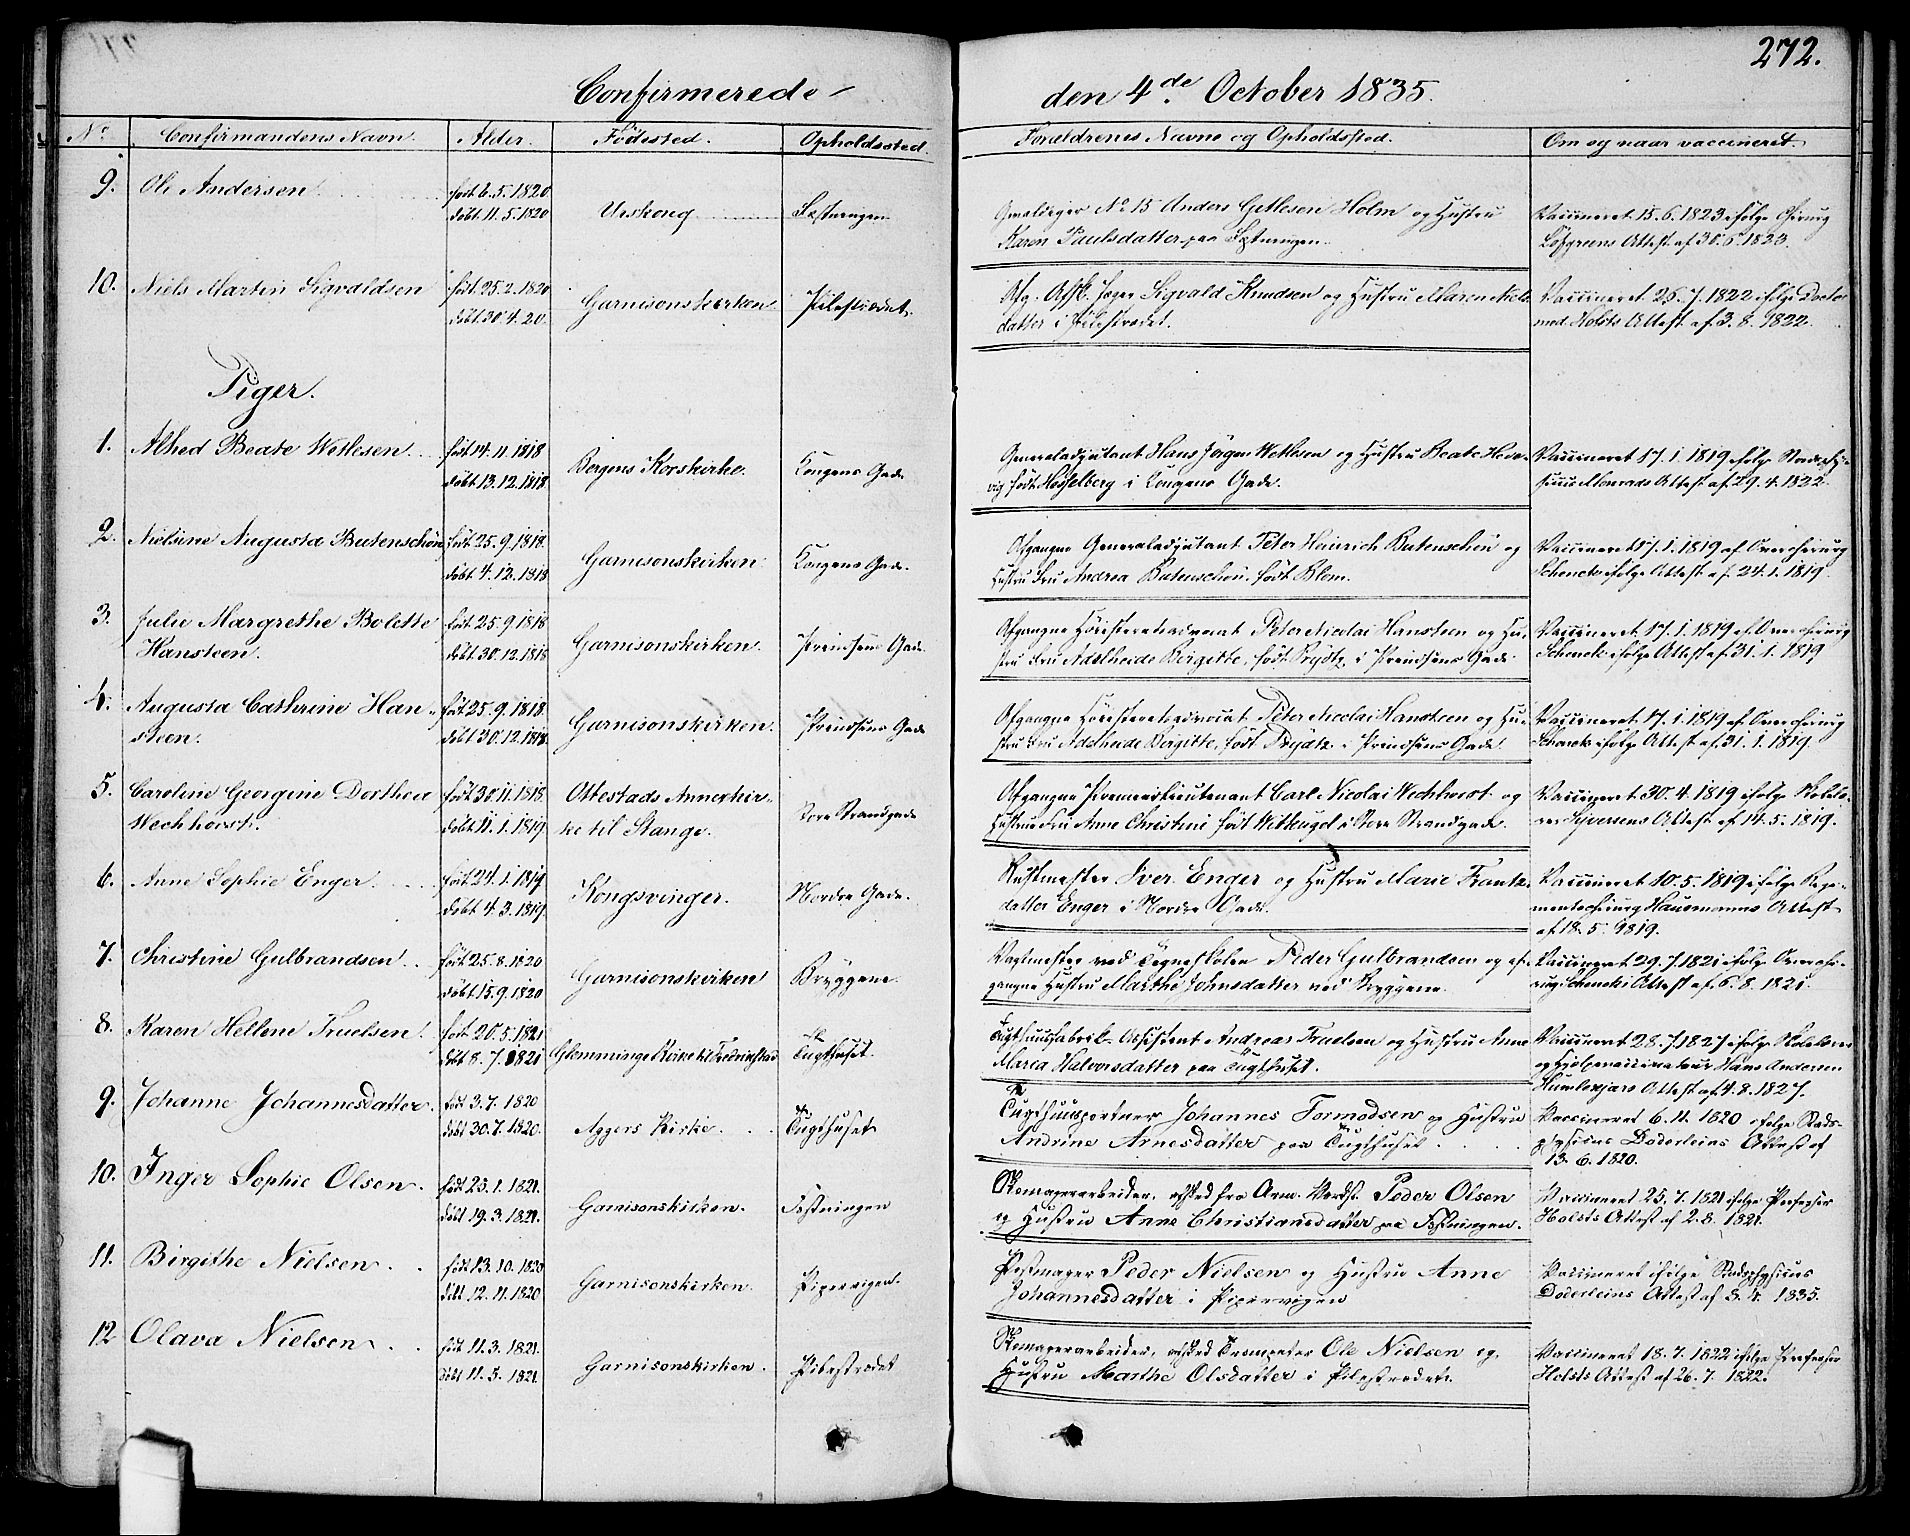 272.
Confirmerede den 4de October 1835.
No Confirmandens Navn. Alder. Fødested. Opholdssted. Forældrenes Navne og Opholdssted. Om og naar vaccineret.
9. Ole Andersen født 6.5.1820 døbt 11.5.1820 Urskoug Fæstningen
Gevaldiger No 15 Anders Getlesen Holm og Hustru
Karen Paulsdatter paa Fæstningen.
Vaccineret 15.6.1823 ifølge Chirurg
Løfgreens Attest af 30.6.1823.
10. Niels Martin Sigvaldsen født 25.2.1820 døbt 30.4.20. Garnisonskirken Pilestrædet.
Afg. Afsk. Jæger Sigvald Knudsen og Hustru Maren Niels-
datter i Pilestrædet.
Vaccineret 26.7.1822 ifølge Doctor
med. Holsts Attest af 3.8.1822.
Piger.
1. Alhed Beate Wetlesen født 14.11.1818 døbt 13.12.1818 Bergens Korskirke. Kongens Gade.
Generaladjutant Hans Jørgen Wetlesen og Hustru Beate Hede-
vig født Hesselberg i Kongens Gade.
Vaccineret 17.1.1819 ifølge Stadsphy-
sicus Monrads Attest af 29.4.1822.
2. Nielsine Augusta Butenschön født 25.9.1818. døbt 4.12.1818 Garnisonskirken Kongens Gade.
Afgangne Generaladjutant Peter Heinrich Butenschön og
Hustru Fru Andrea Butenschön født Blom.
Vaccineret 17.1.1819 af Overchirurg
Schenck ifølge Attest af 24.1.1819.
3. Julie Margrethe Bolette
Hansteen. født 25.9.1818 døbt 30.12.1818 Garnisonskirken. Prindsens Gade.
Afgangne Høiesteretsadvocat Peter Nicolai Hansteen og Hu-
stru Fru Adelheide Birgitte, født Prydtz i Prindsens Gade.
Vaccineret 17.1.1819 af Overchirurg
Schenck ifølge Attest af 31.1.1819
4. Augusta Cathrine Han-
steen. født 25.9.1818. døbt 30.12.1818. Garnisonskirken. Prindsens Gade
Afgangne Høiesteretsadvocat Peter Nicolai Hansteen og Hu-
stru Fru Adelheide Birgitte, født Prydtz i Prindsens Gade.
Vaccineret 17.1.1819 af Overchirurg
Schenck ifølge Attest af 31.1.1819.
5. Caroline Georgine Dorthea
Wechhorst. født 30.11.1818. døbt 11.1.1819. Ottestads Annexkir-
ke til Stange. Store Strandgade
Afgangne Premierlieutenant Carl Nicolai Wechhorst og
Hustru Fru Anne Christine født Witkugel i Store Strandgade.
Vaccineret 30.4.1819 ifølge Skolelæ-
rer Syversens Attest af 14.5.1819.
6. Anne Sophie Enger. født 24.1.1819. døbt 4.3.1819. Kongsvinger. Nordre Gade.
Rustmester Iver Enger og Hustru Marie Frantz-
datter Enger i Nordre Gade.
Vaccineret 10.5.1819 ifølge Regi-
mentschirurg Hausmanns Attest
af 18.5.1819.
7. Christine Gulbrandsen født 25.8.1820 døbt 15.9.1820 Garnisonskirken Bryggene.
Vagtmester ved Tegneskolen Peder Gulbrandsen og af-
gangne Hustru Marthe Johnsdatter ved Bryggene.
Vaccineret 29.7.1821 ifølge Overchi-
rurg Schencks Attest af 6.8.1821.
8. Karen Hellene Truelsen. født 20.5.1821 døbt 8.7.1821 Glemminge Kirke til Fredrikstad Tugthuset.
Tugthuusfabrik-Assistent Andreas Truelsen og Hustru Anne
Maria Halvorsdatter paa Tugthuset.
Vaccineret 28.7.1827 ifølge Skolelærer
og Hjelpevaccinateur Hans Andersen
Humlekjærs Attest af 4.8.1827.
9. Johanne Johannesdatter. født 3.7.1820 døbt 30.7.1820. Aggers Kirke. Tugthuset
Tugthuusportner Johannes Tormodsen og Hustru
Andrine Arnesdatter paa Tugthuset
Vaccineret 6.11.1820 ifølge Stads-
physicus Døderleins Attest af
13.6.1820.
10. Inger Sophie Olsen. født 23.1.1821. døbt 19.3.1821. Garnisonskirken. Fæstningen
Skomagerarbeider, afsked fra Arm. Værkst. Peder Olsen
og Hustru Anne Christiansdatter paa Fæstningen.
Vaccineret 25.7.1821 ifølge Professor
Holsts Attest af 2.8.1821.
11. Birgithe Nielsen. født 13.10.1820 døbt 12.11.1820 Garnisonskirken. Pipervigen.
Postmager Peder Nielsen og Hustru Anne
Johannesdatter i Pipervigen
Vaccineret ifølge Stadsphysicus
Døderleins Attest af 8.4.1835.
12 Olava Nielsen. født 11.3.1821. døbt 11.5.1821. Garnisonskirken. Pilestrædet
Skomagerarbeider, afsked Trompeter Ole Nielsen og
Hustru Marthe Olsdatter i Pilestrædet.
Vaccineret 18.7.1822 ifølge Professor
Holsts Attest af 26.7.1822.